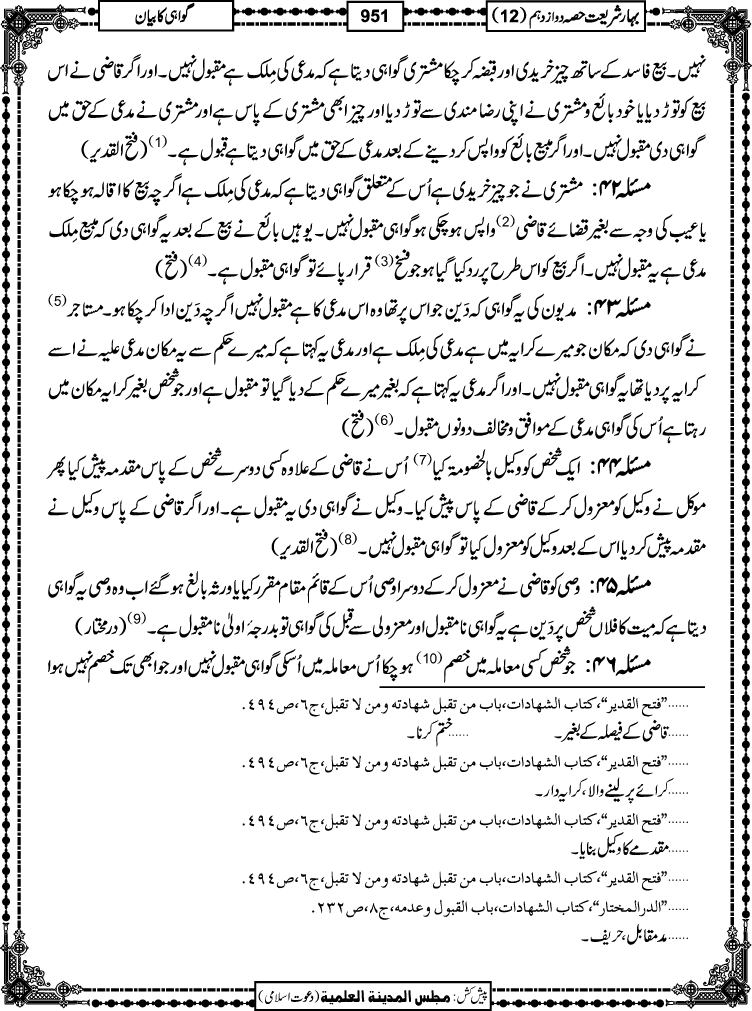 بہارِ شریعت حصہ دوازدہم (12)
951
گواہی کا بیان
نہیں۔ بیع فاسد کے ساتھ چیز خریدی اور قبضہ کر چکا مشتری گواہی دیتا ہے کہ مدعی کی مِلک ہے مقبول نہیں۔ اور اگر قاضی نے اس
بیع کو توڑ دیا یا خود بائع و مشتری نے اپنی رضا مندی سے توڑ دیا اور چیز ابھی مشتری کے پاس ہے اور مشتری نے مدعی کے حق میں
گواہی دی مقبول نہیں۔ اور اگر مبیع بائع کو واپس کر دینے کے بعد مدعی کے حق میں گواہی دیتا ہے قبول ہے۔(1) (فتح القدیر)
مسئلہ ۴۲: مشتری نے جو چیز خریدی ہے اُس کے متعلق گواہی دیتا ہے کہ مدعی کی مِلک ہے اگرچہ بیع کا اقالہ ہو چکا ہو
یا عیب کی وجہ سے بغیر قضائے قاضی(2) واپس ہو چکی ہو گواہی مقبول نہیں۔ یوہیں بائع نے بیع کے بعد یہ گواہی دی کہ مبیع مِلک
مدعی ہے یہ مقبول نہیں۔ اگر بیع کو اس طرح پر رد کیا گیا ہو جو فسخ(3) قرار پائے تو گواہی مقبول ہے۔(4) (فتح)
مسئلہ ۴۳: مدیون کی یہ گواہی کہ دَین جو اس پر تھا وہ اس مدعی کا ہے مقبول نہیں اگرچہ دَین ادا کر چکا ہو۔ مستاجر(5)
نے گواہی دی کہ مکان جو میرے کرایہ میں ہے مدعی کی مِلک ہے اور مدعی یہ کہتا ہے کہ میرے حکم سے یہ مکان مدعی علیہ نے اسے
کرایہ پر دیا تھا یہ گواہی مقبول نہیں۔ اور اگر مدعی یہ کہتا ہے کہ بغیر میرے حکم کے دیا گیا تو مقبول ہے اور جو شخص بغیر کرایہ مکان میں
رہتا ہے اُس کی گواہی مدعی کے موافق و مخالف دونوں مقبول۔(6) (فتح)
مسئلہ ۴۴: ایک شخص کو وکیل بالخصومۃ کیا(7) اُس نے قاضی کے علاوہ کسی دوسرے شخص کے پاس مقدمہ پیش کیا پھر
موکل نے وکیل کو معزول کر کے قاضی کے پاس پیش کیا۔ وکیل نے گواہی دی یہ مقبول ہے۔ اور اگر قاضی کے پاس وکیل نے
مقدمہ پیش کر دیا اس کے بعد وکیل کو معزول کیا تو گواہی مقبول نہیں۔(8) (فتح القدیر)
مسئلہ ۴۵: وصی کو قاضی نے معزول کر کے دوسرا وصی اُس کے قائم مقام مقرر کیا یا ورثہ بالغ ہو گئے اب وہ وصی یہ گواہی
دیتا ہے کہ میت کا فلاں شخص پر دَین ہے یہ گواہی نامقبول اور معزولی سے قبل کی گواہی تو بدرجۂ اولیٰ نامقبول ہے۔(9) (درمختار)
مسئلہ ۴۶: جو شخص کسی معاملہ میں خصم(10) ہو چکا اُس معاملہ میں اُسکی گواہی مقبول نہیں اور جو ابھی تک خصم نہیں ہوا
......”فتح القدير“، كتاب الشهادات، باب من تقبل شهادته ومن لا تقبل، ج٦، ص٤٩٤.
......قاضی کے فیصلہ کے بغیر۔ ......ختم کرنا۔
......”فتح القدير“، كتاب الشهادات، باب من تقبل شهادته ومن لا تقبل، ج٦، ص٤٩٤.
......کرائے پر لینے والا، کرایہ دار۔
......”فتح القدير“، كتاب الشهادات، باب من تقبل شهادته ومن لا تقبل، ج٦، ص٤٩٤.
......مقدمے کا وکیل بنایا۔
......”فتح القدير“، كتاب الشهادات، باب من تقبل شهادته ومن لا تقبل، ج٦، ص٤٩٤.
......”الدرالمختار“، كتاب الشهادات، باب القبول وعدمه، ج٨، ص٢٣٢.
......مدمقابل، حریف۔
پیش کش: مجلس المدينة العلمية (دعوت اسلامی)